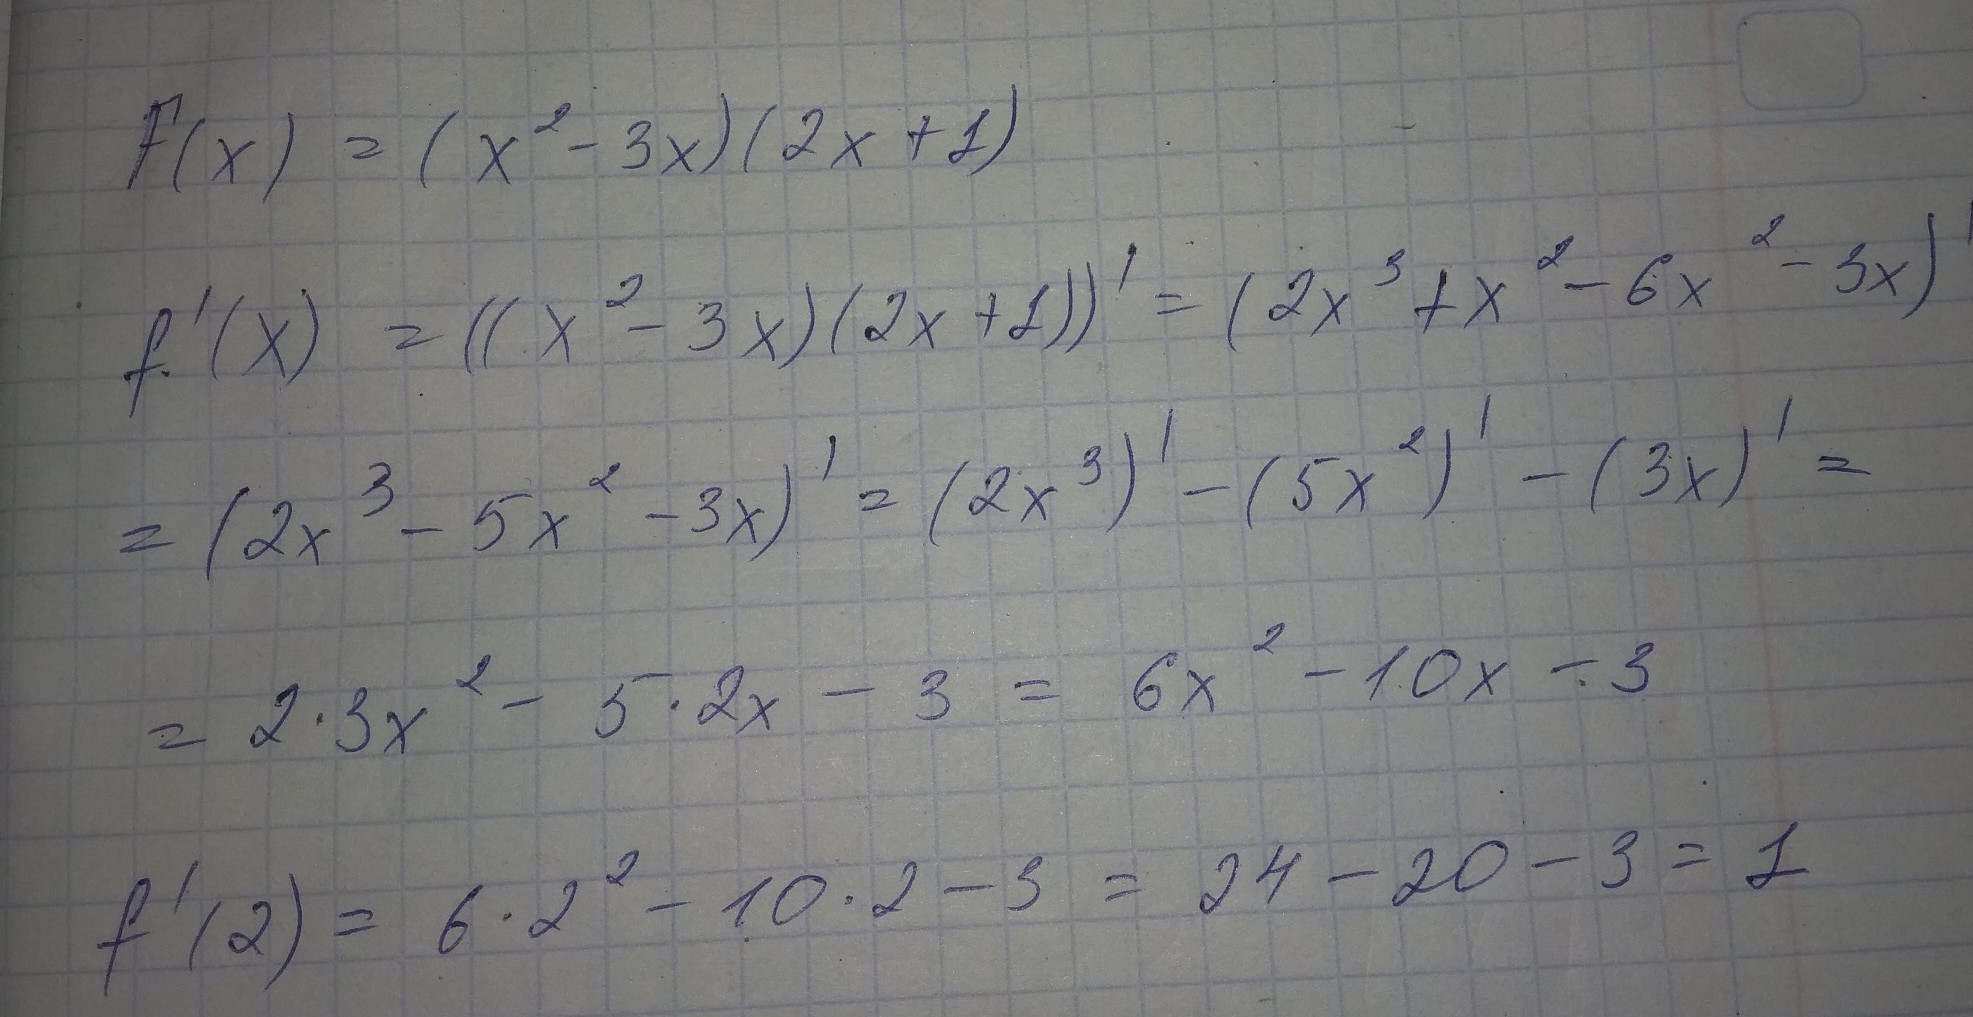 F(x) = (x² - 3x)(2x + 1)
f'(x) = ((x² - 3x)(2x + 1))' = (2x³ + x² - 6x² - 3x)'
= (2x³ - 5x² - 3x)' = (2x³)' - (5x²)' - (3x)' =
= 2·3x² - 5·2x - 3 = 6x² - 10x - 3
f'(2) = 6·2² - 10·2 - 3 = 24 - 20 - 3 = 1